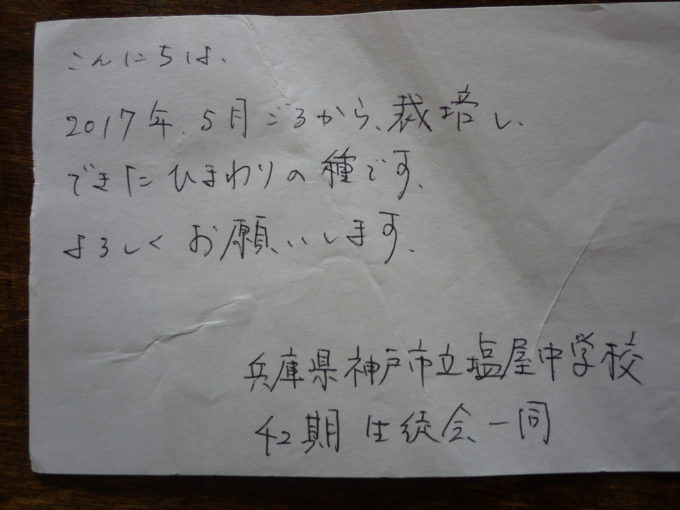 こんにちは、
2017年、5月ごろから、栽培し、
できたひまわりの種です。
よろしくお願いします。
兵庫県神戸市立塩屋中学校
42期 生徒会一同